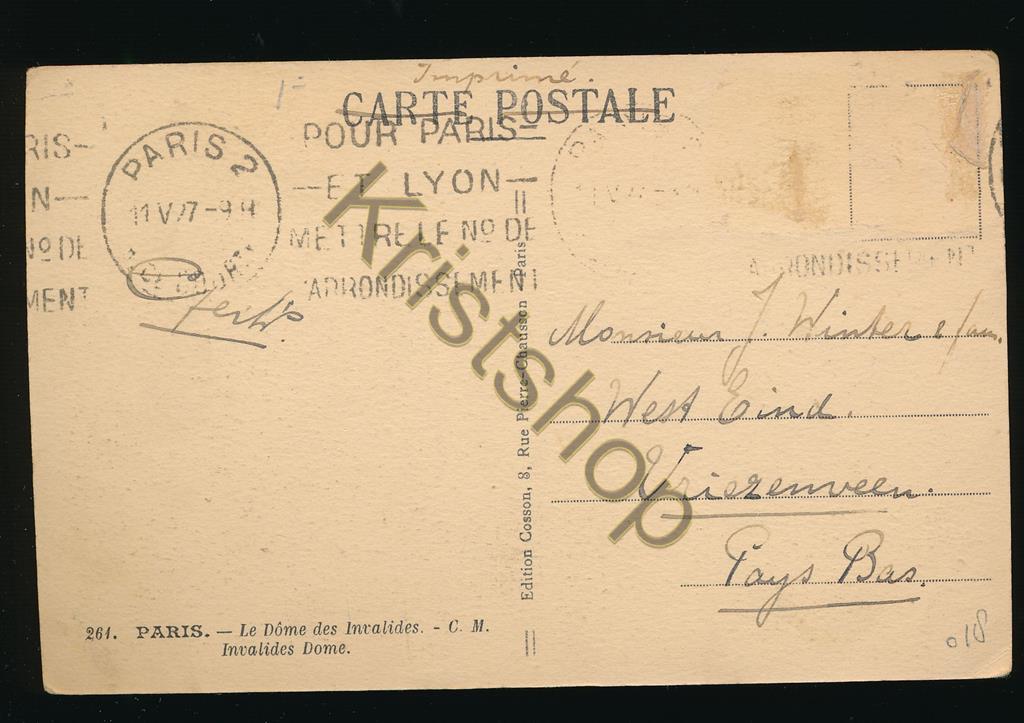 Imprimé.
CARTE POSTALE
RIS—
N—
No DE
MENT
PARIS 2
11 V 27 - 9 H
POUR PARIS—
—ET LYON—
METTRE LE No DE
ARRONDISSEMENT
ARRONDISSEMENT
Monsieur J. Winter
West Eind.
Vriezenveen.
Pays Bas.
Edition Cosson, 8, Rue Pierre-Chausson Paris
261. PARIS. — Le Dôme des Invalides. - C. M.
Invalides Dome.
018
Kristshop